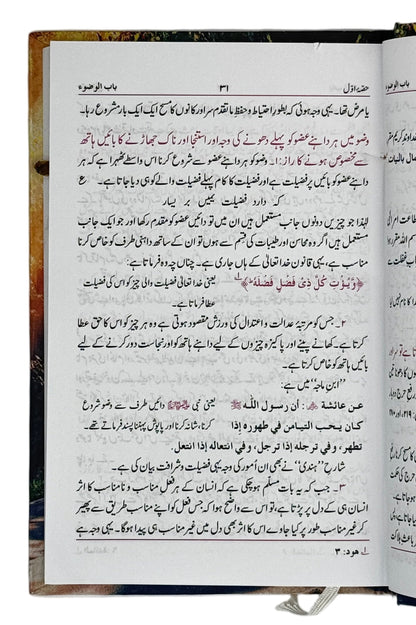 حصۂ اوّل ۳۱ باب الوضوء
یا مرض تھا۔ یہی وجہ ہوئی کہ بطور احتیاط و حفظِ ما تقدم سر اور کانوں کا مسح ایک ایک بار مشروع رہا۔
وضو میں ہر داہنے عضو کو پہلے دھونے کی وجہ اور استنجا اور ناک جھاڑنے کا بائیں ہاتھ
سے مخصوص ہونے کا راز: ۱۔ وضو کو ہر داہنے عضو سے شروع کرنا اس واسطے ٹھہرا ہے کہ ہر
داہنے عضو کو بائیں پر فضیلت ہے اور فضیلت کا کام پہلے فضیلت والے کو ہی دیا جاتا ہے۔ ع
کہ دارد فضیلت یمیں بر یسار
لہٰذا جو چیزیں دونوں جانب مستعمل ہیں ان میں تو دائیں عضو کو مقدم رکھا اور جو ایک جانب
مستعمل ہیں اگر وہ محاسن اور طیبات کی قسم سے ہوں تو ان کے ساتھ داہنی طرف کو خاص کرنا
مناسب ہے، یہی قانون خدا تعالیٰ کے ہاں جاری ہے۔ چناں چہ وہ فرماتا ہے:
﴿وَيُؤْتِ كُلَّ ذِي فَضْلٍ فَضْلَهُ﴾ یعنی خدا تعالیٰ فضیلت والی چیز کو اس کی فضیلت
عطا فرماتا ہے۔
۲۔ جس کو مرتبۂ عدالت و اعتدال کی ورزش مقصود ہوتی ہے وہ ہر چیز کو اس کا حق عطا
کرتا ہے۔ کھانے پینے اور پاکیزہ چیزوں کے لیے داہنے ہاتھ کو اور نجاست دور کرنے کے لیے
بائیں ہاتھ کو خاص کرتا ہے۔
”ابن ماجہ“ میں ہے:
عن عائشة: أن رسول الله یعنی نبی دائیں طرف سے وضو شروع
كان يحب التيامن في طهوره إذا کرنا، شانہ کرنا اور پاپوش پہننا پسند فرماتے تھے۔
تطهر، وفي ترجله إذا ترجل، وفي انتعاله إذا انتعل.
شارحِ ”ہندی“ نے بھی ان اُمور کی وجہ یہی فضیلت و شرافت بیان کی ہے۔
۳۔ جب کہ یہ بات مسلّم ہو چکی ہے کہ انسان کے ہر فعلِ مناسب و نا مناسب کا اثر
انسان ہی کے دل پر پڑتا ہے، تو اس سے واضح ہوا کہ جس فعل کو اپنے مناسب طریق سے پھیر
کر غیر مناسب طور پر کیا جاوے اس کا اثر بھی دل میں غیر مناسب ہی پیدا ہوگا۔ یہی وجہ ہے
ھود: ۳